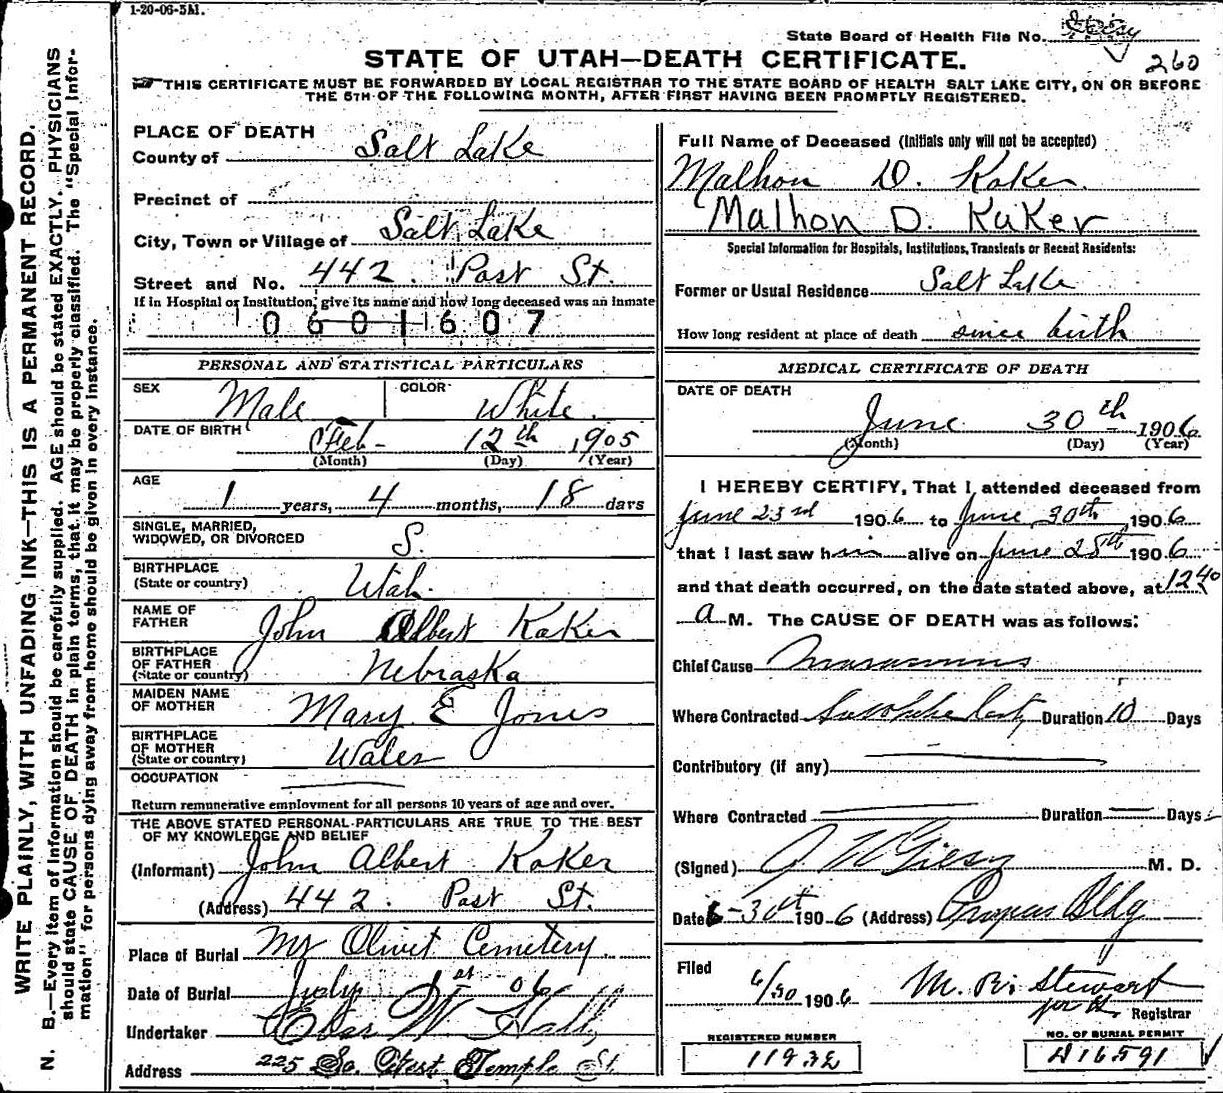 1-20-06-5M.
State Board of Health File No.
260
STATE OF UTAH—DEATH CERTIFICATE.
THIS CERTIFICATE MUST BE FORWARDED BY LOCAL REGISTRAR TO THE STATE BOARD OF HEALTH SALT LAKE CITY, ON OR BEFORE
THE 5TH OF THE FOLLOWING MONTH, AFTER FIRST HAVING BEEN PROMPTLY REGISTERED.
WRITE PLAINLY, WITH UNFADING INK—THIS IS A PERMANENT RECORD.
N. B.—Every item of information should be carefully supplied. AGE should be stated EXACTLY. PHYSICIANS
should state CAUSE OF DEATH in plain terms, that it may be properly classified. The "Special Infor-
mation" for persons dying away from home should be given in every instance.
PLACE OF DEATH
County of Salt Lake
Precinct of
City, Town or Village of Salt Lake
Street and No. 442. Post St.
If in Hospital or Institution, give its name and how long deceased was an inmate
0601607
PERSONAL AND STATISTICAL PARTICULARS
SEX Male COLOR White.
DATE OF BIRTH Feb- 12th 1905
(Month) (Day) (Year)
AGE
1 years, 4 months, 18 days
SINGLE, MARRIED,
WIDOWED, OR DIVORCED S.
BIRTHPLACE
(State or country) Utah.
NAME OF
FATHER John Albert Kaker
BIRTHPLACE
OF FATHER
(State or country) Nebraska
MAIDEN NAME
OF MOTHER Mary E Jones
BIRTHPLACE
OF MOTHER
(State or country) Wales
OCCUPATION
Return remunerative employment for all persons 10 years of age and over.
THE ABOVE STATED PERSONAL PARTICULARS ARE TRUE TO THE BEST
OF MY KNOWLEDGE AND BELIEF
(Informant) John Albert Kaker
(Address) 442. Post St.
Place of Burial Mt Olivet Cemetery
Date of Burial July 1st 06
Undertaker Eber W Hall
Address 225 So. West Temple St.
Full Name of Deceased (Initials only will not be accepted)
Malhon D. Kaker
Malhon D. KaKer
Special Information for Hospitals, Institutions, Transients or Recent Residents:
Former or Usual Residence Salt Lake
How long resident at place of death since birth
MEDICAL CERTIFICATE OF DEATH
DATE OF DEATH
June 30th 1906
(Month) (Day) (Year)
I HEREBY CERTIFY, That I attended deceased from
June 23rd 1906 to June 30th, 1906
that I last saw him alive on June 28th 1906
and that death occurred, on the date stated above, at 12 40
a M. The CAUSE OF DEATH was as follows:
Chief Cause Marasmus
Where Contracted Duration 10 Days
Contributory (if any)
Where Contracted Duration Days
(Signed) M. D.
Date 6-30th 1906 (Address) Progress Bldg
Filed 6/30 1906 Stewart
Registrar
REGISTERED NUMBER NO. OF BURIAL PERMIT
A16591